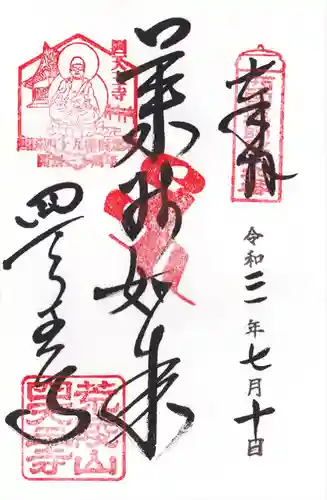 奉拝
令和三年七月十日
薬師如来
四天王寺
四天王寺
荒陵山
四天王寺